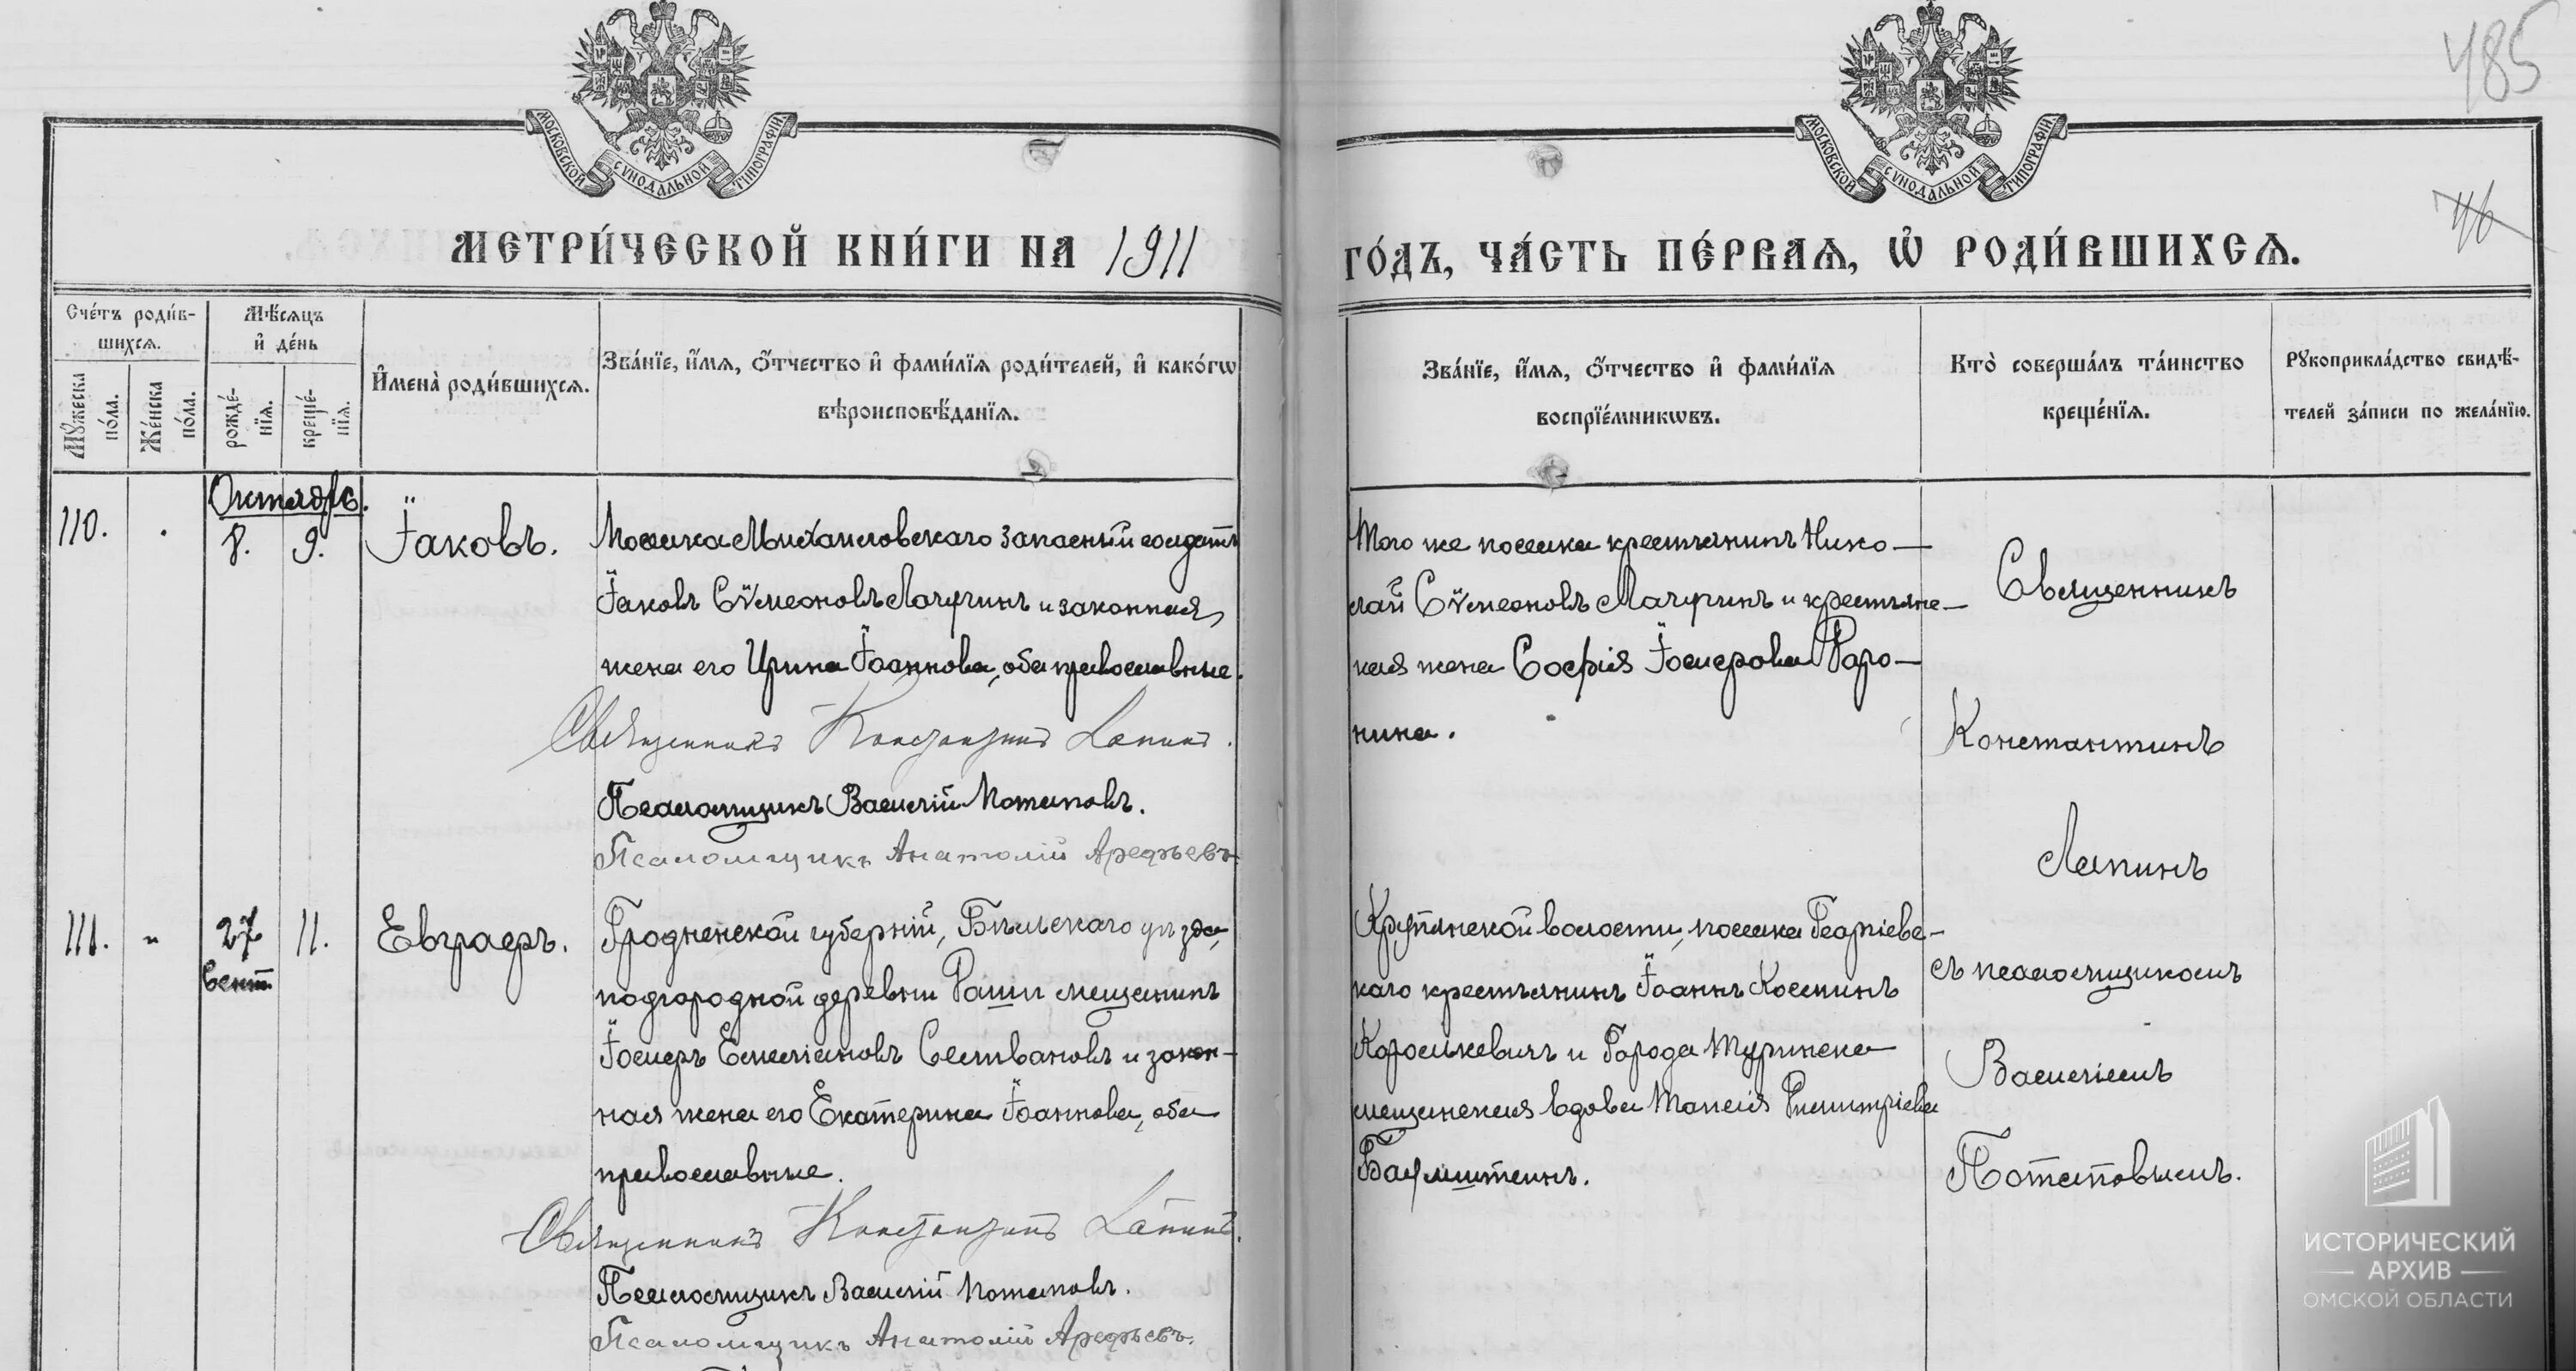 МОСКОВСКОЙ СѴНОДАЛЬНОЙ ТИПОГРАФІИ
МОСКОВСКОЙ СѴНОДАЛЬНОЙ ТИПОГРАФІИ
485
46
МЕТРИ́ЧЕСКОЙ КНИ́ГИ НА 1911
ГО́ДЪ, ЧА́СТЬ ПЕ́РВАѦ, Ѡ҆ РОДИ́ВШИХСѦ.
Сче́тъ роди́в-
шихсѧ.
Мꙋ́жеска
по́ла.
Же́нска
по́ла.
Мѣ́сѧцъ
и҆ де́нь
рожде́-
нїѧ.
креще́-
нїѧ.
И҆мена̀ роди́вшихсѧ.
Зва́нїе, и҆́мѧ, ѻ҆́тчество и҆ фами́лїѧ роди́телей, и҆ како́гѡ
вѣроисповѣ́данїѧ.
Зва́нїе, и҆́мѧ, ѻ҆́тчество и҆ фами́лїѧ
воспрїе́мникѡвъ.
Кто̀ соверша́лъ та́инство
креще́нїѧ.
Рꙋкоприкла́дство свидѣ́-
телей за́писи по жела́нїю.
Октябрь.
110.
8.
9.
Іаковъ.
Поселка Михайловскаго запасный солдатъ
Іаковъ Сѵмеоновъ Лачугинъ и законная
жена его Ирина Іоаннова, оба православные.
Священникъ Константинъ Лапинъ.
Псаломщикъ Василій Потаповъ.
Псаломщикъ Анатолій Арефьевъ.
Того же поселка крестьянинъ Нико-
лай Сѵмеоновъ Лачугинъ и крестьянс-
кая жена Софія Іосифова
нина.
Священникъ
Константинъ
Лапинъ
111.
"
27
Сент.
11.
Евграфъ.
Гродненской губерніи, Бѣльскаго уѣзда,
подгородной деревни мещанинъ
Іосифъ Емеліановъ Селивановъ и закон-
ная жена его Екатерина Іоаннова, оба
православные.
Священникъ Константинъ Лапинъ.
Псаломщикъ Василій Потаповъ.
Псаломщикъ Анатолій Арефьевъ.
Крутинской волости, поселка Георгіевс-
каго крестьянинъ Іоаннъ Косминъ
и города Туринска
мещанская вдова Таисія Димитріева
Баумштейнъ.
съ псаломщикомъ
Василіемъ
Потаповымъ.
ИСТОРИЧЕСКИЙ
АРХИВ
ОМСКОЙ ОБЛАСТИ